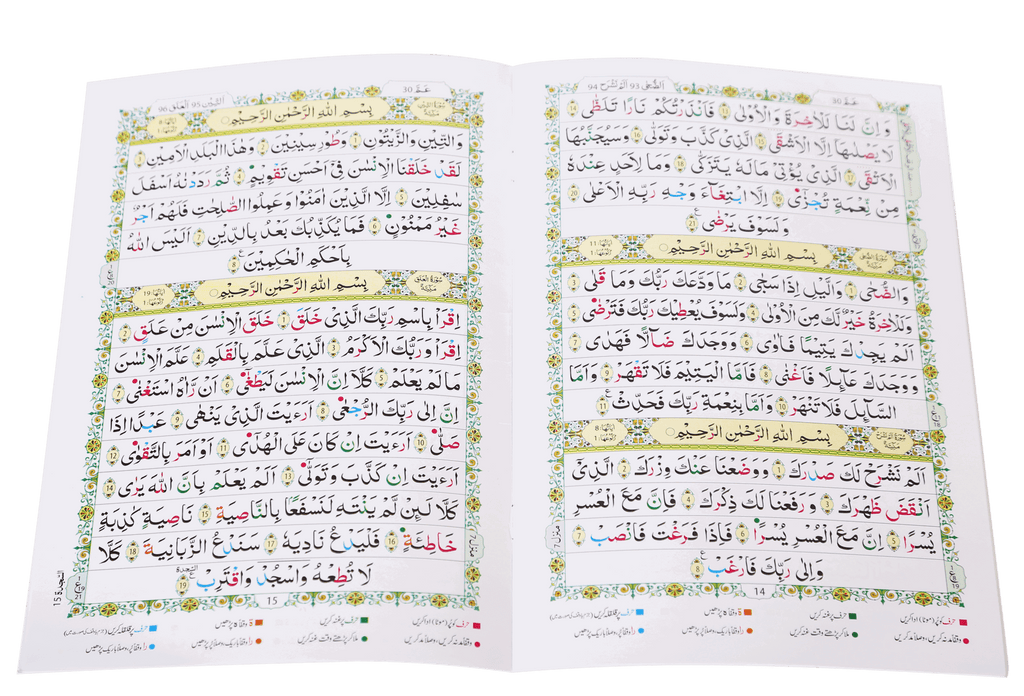 عَمّ 30
اَلضُّحٰى 93 اَلَمْ نَشْرَحْ 94
وَ اِنَّ لَنَا لَلْاٰخِرَةَ وَ الْاُوْلٰى ۝13 فَاَنْذَرْتُكُمْ نَارًا تَلَظّٰى ۝14
لَا يَصْلٰىهَا اِلَّا الْاَشْقَى ۝15 الَّذِىْ كَذَّبَ وَتَوَلّٰى ۝16 وَسَيُجَنَّبُهَا
الْاَتْقَى ۝17 الَّذِىْ يُؤْتِىْ مَالَهٗ يَتَزَكّٰى ۝18 وَمَا لِاَحَدٍ عِنْدَهٗ
مِنْ نِّعْمَةٍ تُجْزٰٓى ۝19 اِلَّا ابْتِغَآءَ وَجْهِ رَبِّهِ الْاَعْلٰى ۝20
وَلَسَوْفَ يَرْضٰى ۝21
بِسْمِ اللّٰهِ الرَّحْمٰنِ الرَّحِيْمِ
وَالضُّحٰى ۝1 وَالَّيْلِ اِذَا سَجٰى ۝2 مَا وَدَّعَكَ رَبُّكَ وَمَا قَلٰى ۝3
وَلَلْاٰخِرَةُ خَيْرٌ لَّكَ مِنَ الْاُوْلٰى ۝4 وَلَسَوْفَ يُعْطِيْكَ رَبُّكَ فَتَرْضٰى ۝5
اَلَمْ يَجِدْكَ يَتِيْمًا فَاٰوٰى ۝6 وَوَجَدَكَ ضَآلًّا فَهَدٰى ۝7
وَوَجَدَكَ عَآئِلًا فَاَغْنٰى ۝8 فَاَمَّا الْيَتِيْمَ فَلَا تَقْهَرْ ۝9 وَاَمَّا
السَّآئِلَ فَلَا تَنْهَرْ ۝10 وَاَمَّا بِنِعْمَةِ رَبِّكَ فَحَدِّثْ ۝11
بِسْمِ اللّٰهِ الرَّحْمٰنِ الرَّحِيْمِ
اَلَمْ نَشْرَحْ لَكَ صَدْرَكَ ۝1 وَوَضَعْنَا عَنْكَ وِزْرَكَ ۝2 الَّذِىْٓ
اَنْقَضَ ظَهْرَكَ ۝3 وَرَفَعْنَا لَكَ ذِكْرَكَ ۝4 فَاِنَّ مَعَ الْعُسْرِ
يُسْرًا ۝5 اِنَّ مَعَ الْعُسْرِ يُسْرًا ۝6 فَاِذَا فَرَغْتَ فَانْصَبْ ۝7
وَاِلٰى رَبِّكَ فَارْغَبْ ۝8
14
عَمّ 30
اَلتِّيْن 95 اَلْعَلَق 96
بِسْمِ اللّٰهِ الرَّحْمٰنِ الرَّحِيْمِ
وَالتِّيْنِ وَالزَّيْتُوْنِ ۝1 وَطُوْرِ سِيْنِيْنَ ۝2 وَهٰذَا الْبَلَدِ الْاَمِيْنِ ۝3
لَقَدْ خَلَقْنَا الْاِنْسٰنَ فِىْٓ اَحْسَنِ تَقْوِيْمٍ ۝4 ثُمَّ رَدَدْنٰهُ اَسْفَلَ
سٰفِلِيْنَ ۝5 اِلَّا الَّذِيْنَ اٰمَنُوْا وَعَمِلُوا الصّٰلِحٰتِ فَلَهُمْ اَجْرٌ
غَيْرُ مَمْنُوْنٍ ۝6 فَمَا يُكَذِّبُكَ بَعْدُ بِالدِّيْنِ ۝7 اَلَيْسَ اللّٰهُ
بِاَحْكَمِ الْحٰكِمِيْنَ ۝8
بِسْمِ اللّٰهِ الرَّحْمٰنِ الرَّحِيْمِ
اِقْرَاْ بِاسْمِ رَبِّكَ الَّذِىْ خَلَقَ ۝1 خَلَقَ الْاِنْسٰنَ مِنْ عَلَقٍ ۝2
اِقْرَاْ وَرَبُّكَ الْاَكْرَمُ ۝3 الَّذِىْ عَلَّمَ بِالْقَلَمِ ۝4 عَلَّمَ الْاِنْسٰنَ
مَا لَمْ يَعْلَمْ ۝5 كَلَّآ اِنَّ الْاِنْسٰنَ لَيَطْغٰٓى ۝6 اَنْ رَّاٰهُ اسْتَغْنٰى ۝7
اِنَّ اِلٰى رَبِّكَ الرُّجْعٰى ۝8 اَرَءَيْتَ الَّذِىْ يَنْهٰى ۝9 عَبْدًا اِذَا
صَلّٰى ۝10 اَرَءَيْتَ اِنْ كَانَ عَلَى الْهُدٰٓى ۝11 اَوْ اَمَرَ بِالتَّقْوٰى ۝12
اَرَءَيْتَ اِنْ كَذَّبَ وَتَوَلّٰى ۝13 اَلَمْ يَعْلَمْ بِاَنَّ اللّٰهَ يَرٰى ۝14
كَلَّا لَئِنْ لَّمْ يَنْتَهِ لَنَسْفَعًۢا بِالنَّاصِيَةِ ۝15 نَاصِيَةٍ كَاذِبَةٍ
خَاطِئَةٍ ۝16 فَلْيَدْعُ نَادِيَهٗ ۝17 سَنَدْعُ الزَّبَانِيَةَ ۝18 كَلَّا
لَا تُطِعْهُ وَاسْجُدْ وَاقْتَرِبْ ۝19
15